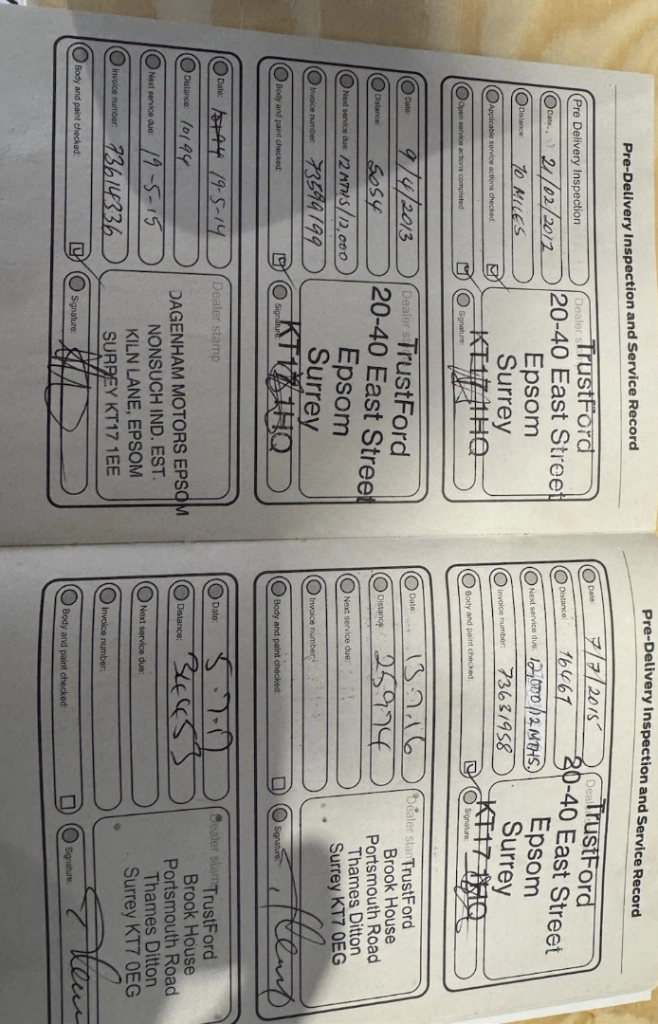 Pre-Delivery Inspection and Service Record
Pre Delivery Inspection
Date: 21/02/2012
Distance: 10 MILES
Applicable service actions checked:
Open service actions completed:
Dealer s
TrustFord
20-40 East Street
Epsom
Surrey
KT17 1HQ
Signature:
Date: 9/4/2013
Distance: 5054
Next service due: 12 MTHS/12,000
Invoice number: 73599199
Body and paint checked:
Dealer s
TrustFord
20-40 East Street
Epsom
Surrey
KT17 1HQ
Signature:
Date: 19-5-14
Distance: 10194
Next service due: 19-5-15
Invoice number: 73614336
Body and paint checked:
Dealer stamp
DAGENHAM MOTORS EPSOM
NONSUCH IND. EST.
KILN LANE, EPSOM
SURREY KT17 1EE
Signature:
Pre-Delivery Inspection and Service Record
Date: 7/7/2015
Distance: 16467
Next service due: 12,000/12 MTHS.
Invoice number: 73631958
Body and paint checked:
Deal
TrustFord
20-40 East Street
Epsom
Surrey
KT17 1HQ
Signature:
Date: 13.7.16
Distance: 25974
Next service due:
Invoice number:
Body and paint checked:
Dealer stam
TrustFord
Brook House
Portsmouth Road
Thames Ditton
Surrey KT7 0EG
Signature:
Date: 5.7.17
Distance: 34453
Next service due:
Invoice number:
Body and paint checked:
Dealer stam
TrustFord
Brook House
Portsmouth Road
Thames Ditton
Surrey KT7 0EG
Signature: